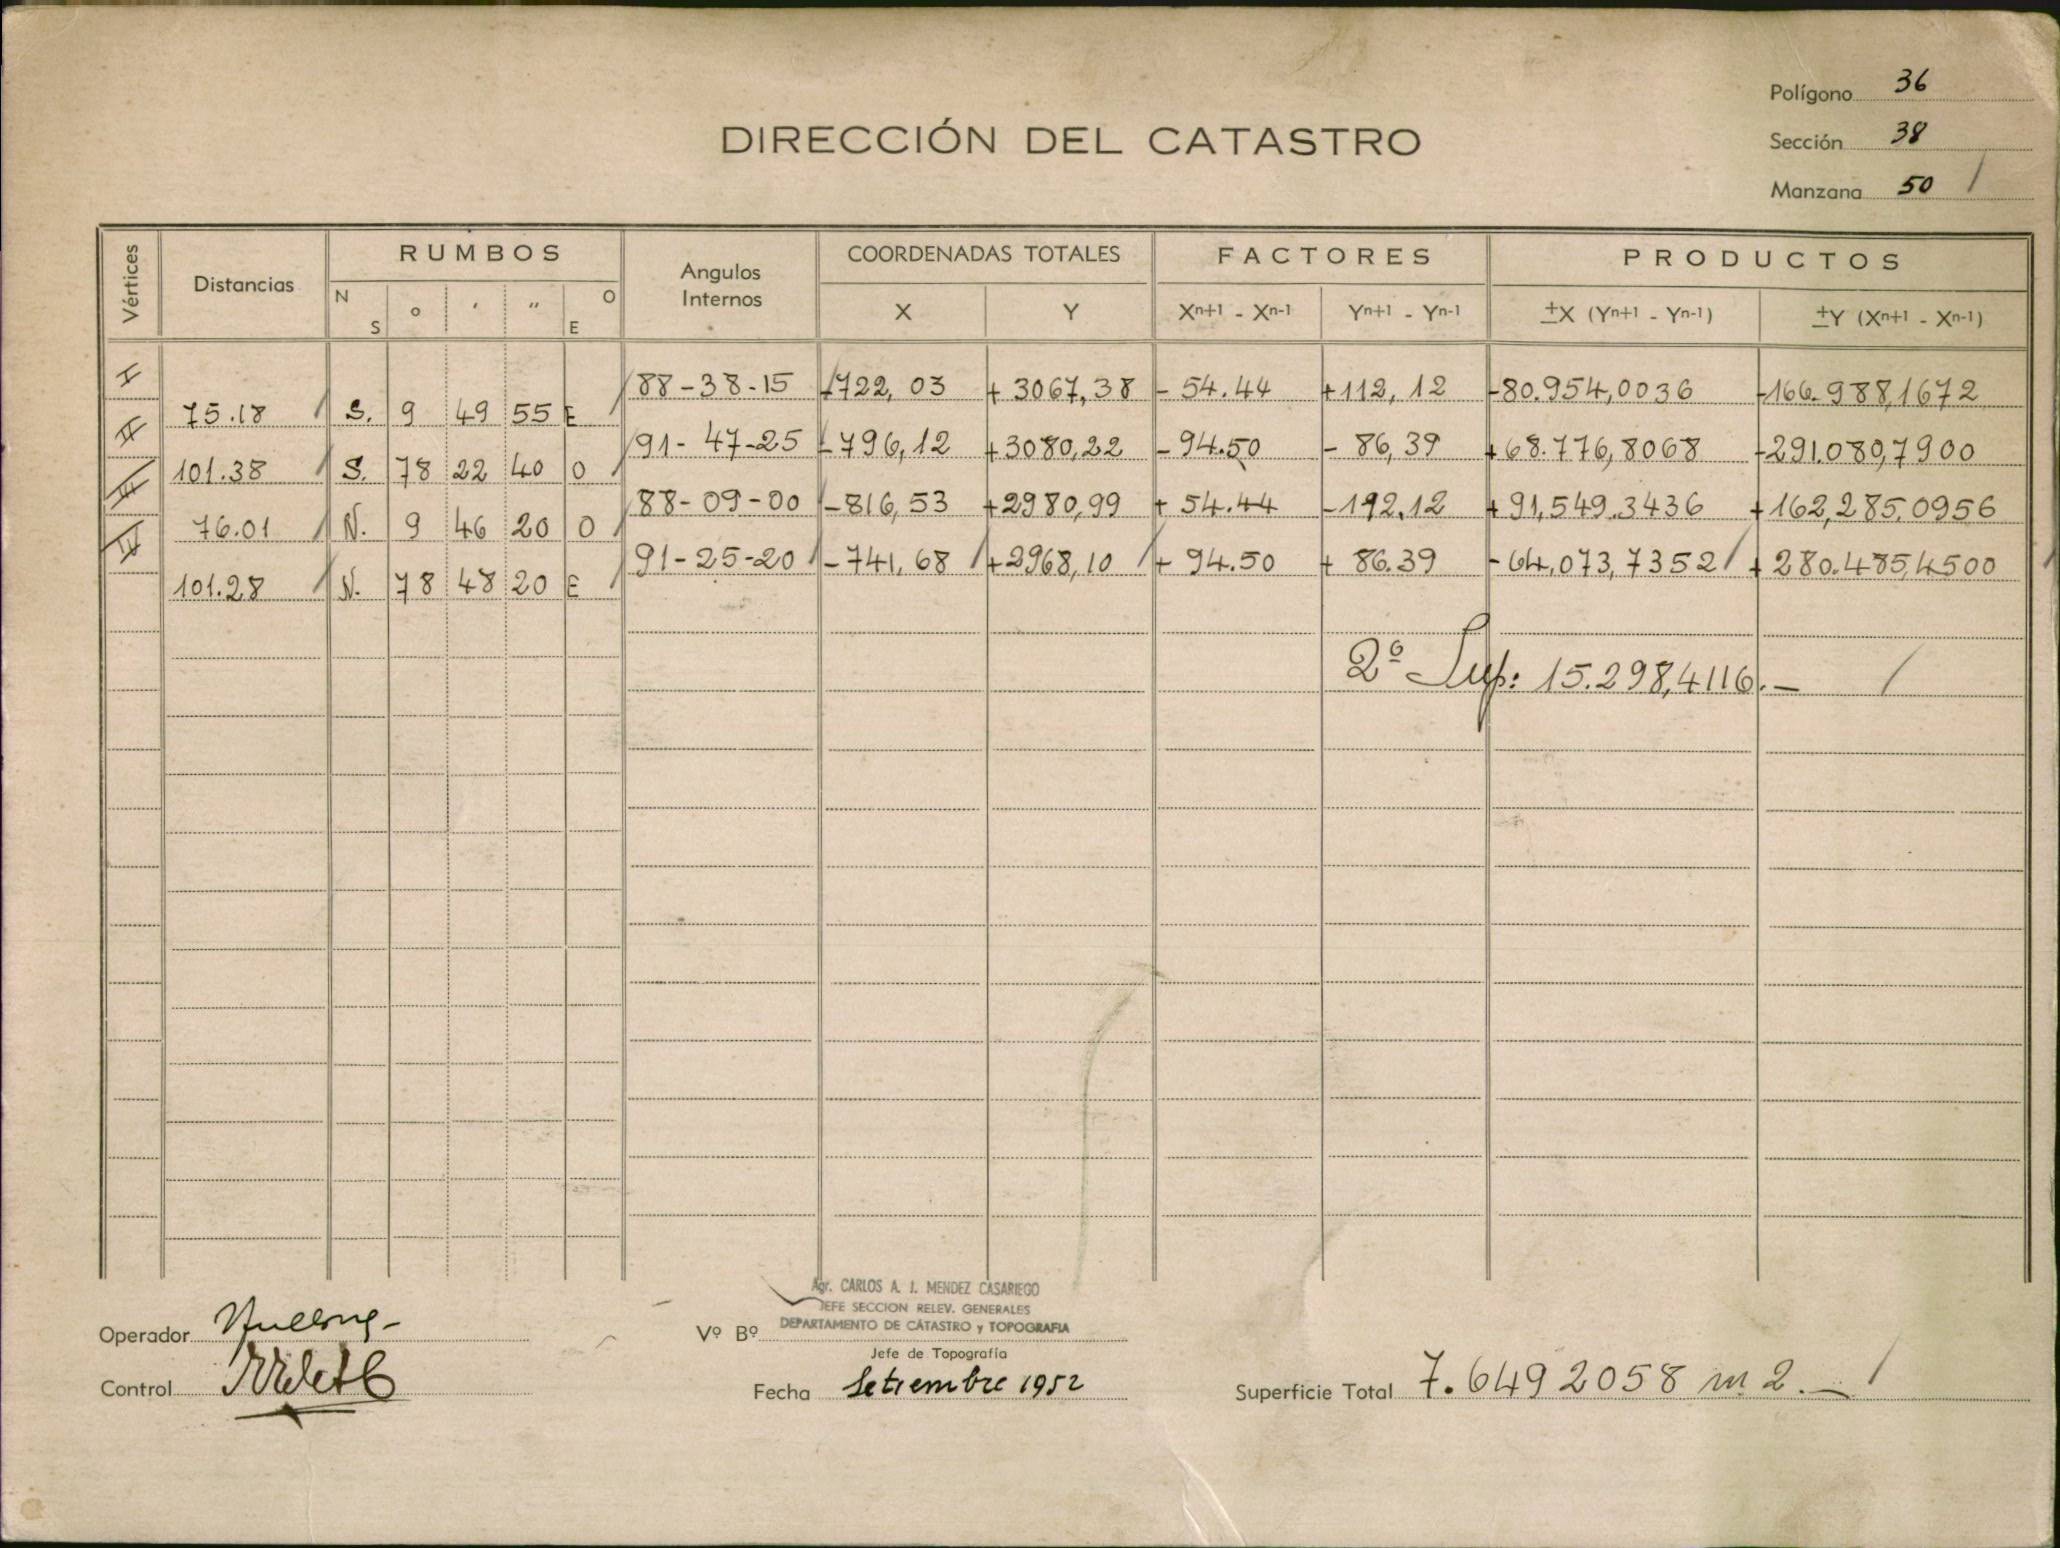 Polígono 36
DIRECCIÓN DEL CATASTRO
Sección 38
Manzana 50 /
Vértices Distancias RUMBOS Angulos Internos COORDENADAS TOTALES FACTORES PRODUCTOS
N S ° ' " O E X Y Xn+1 - Xn-1 Yn+1 - Yn-1 ±X (Yn+1 - Yn-1) ±Y (Xn+1 - Xn-1)
I 88-38-15 -722,03 +3067,38 -54.44 +112,12 -80.954,0036 -166.988,1672
75.18 S. 9 49 55 E
II 91-47-25 -796,12 +3080,22 -94.50 -86,39 +68.776,8068 -291.080,7900
101.38 S. 78 22 40 O
III 88-09-00 -816,53 +2980,99 +54.44 -112.12 +91,549.3436 +162,285.0956
76.01 N. 9 46 20 O
IV 91-25-20 -741,68 +2968,10 +94.50 +86.39 -64,073,7352 +280.485,4500
101.28 N. 78 48 20 E
2º Sup: 15.298,4116.-
Agr. CARLOS A. J. MENDEZ CASARIEGO
JEFE SECCION RELEV. GENERALES
DEPARTAMENTO DE CATASTRO y TOPOGRAFIA
Operador
Vº Bº
Jefe de Topografía
Control
Fecha Setiembre 1952
Superficie Total 7.649 2058 m2.-